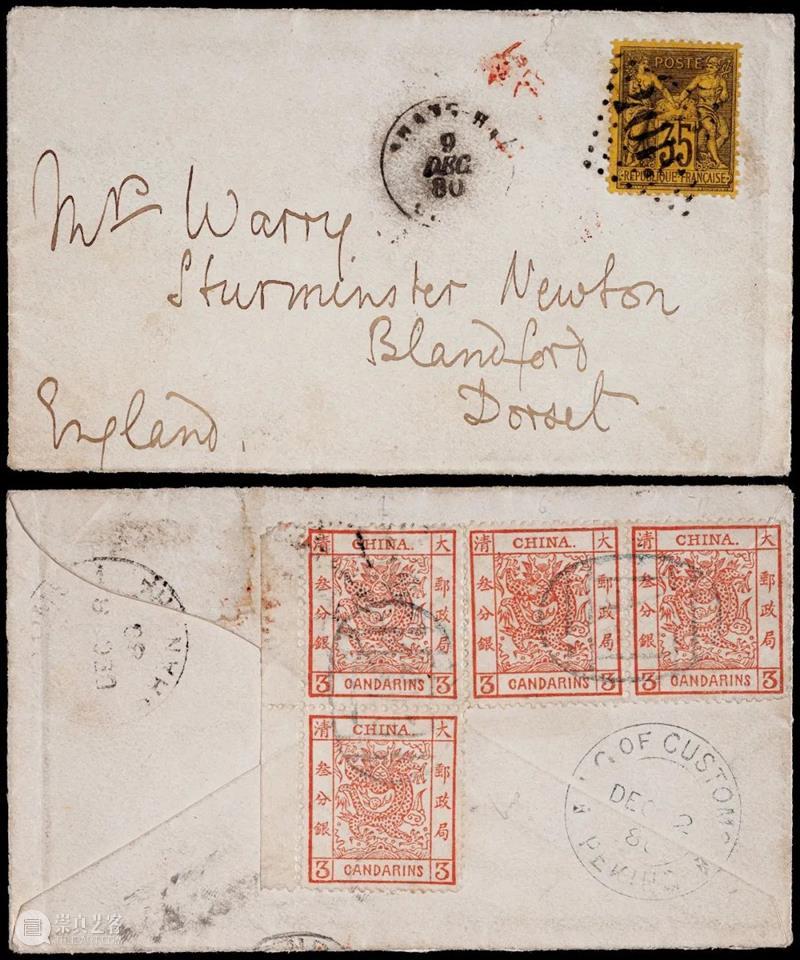 POSTE
35
RÉPUBLIQUE FRANÇAISE
SHANG-HAI
9
DEC
80
Mrs Warry
Sturminster Newton
Blandford
Dorset
England.
清 CHINA. 大
叁分銀
郵政局
3 CANDARINS 3
清 CHINA. 大
叁分銀
郵政局
3 CANDARINS 3
清 CHINA. 大
叁分銀
郵政局
3 CANDARINS 3
清 CHINA. 大
叁分銀
郵政局
3 CANDARINS 3
DEC 8
80
OF CUSTOMS
DEC 2
80
PEKING
崇真艺客